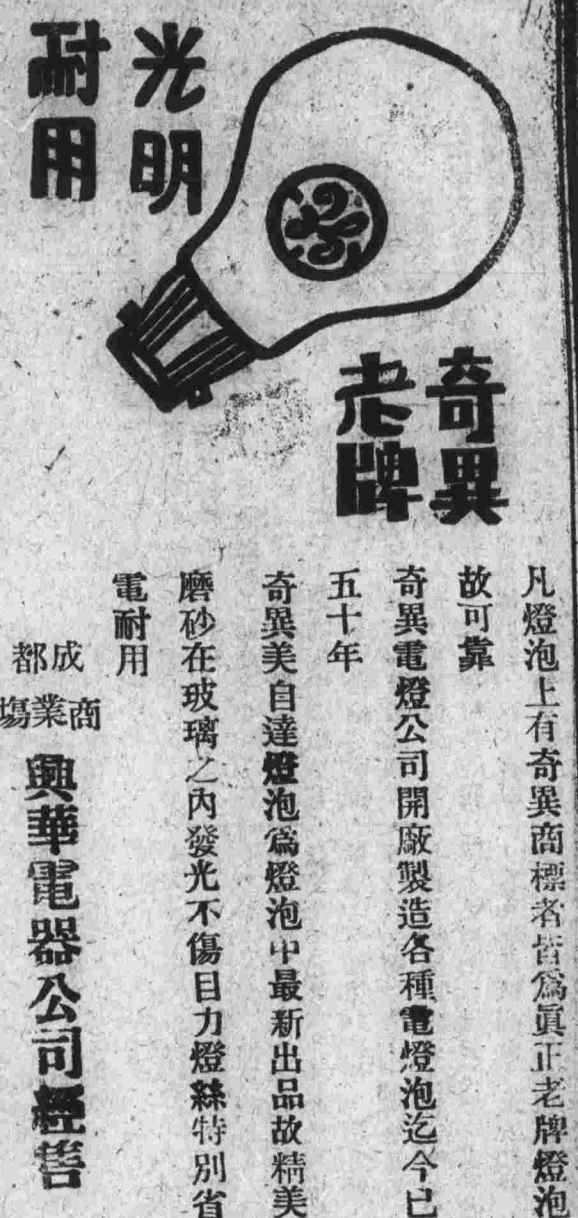 光明
耐用
奇異
老牌
凡燈泡上有奇異商標者皆爲眞正老牌燈泡
故可靠
奇異電燈公司開廠製造各種電燈泡迄今已
五十年
奇異美自達燈泡爲燈泡中最新出品故精美
磨砂在玻璃之內發光不傷目力燈絲特別省
電耐用
成都
商業場
興華電器公司經售